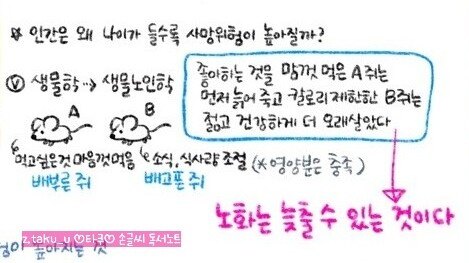 * 인간은 왜 나이가 들수록 사망위험이 높아질까?
ⓥ 생물학 --> 생물노인학
좋아하는 것을 맘껏 먹은 A쥐는
먼저 늙어 죽고 칼로리 제한한 B쥐는
젊고 건강하게 더 오래살았다
A
B
먹고싶은것 마음껏 먹음
배부른 쥐
소식, 식사량 조절 (*영양분은 충족)
배고픈 쥐
노화는 늦출 수 있는 것이다
z.taku_u ♡타쿠♡ 손글씨 독서노트
높아지는 것